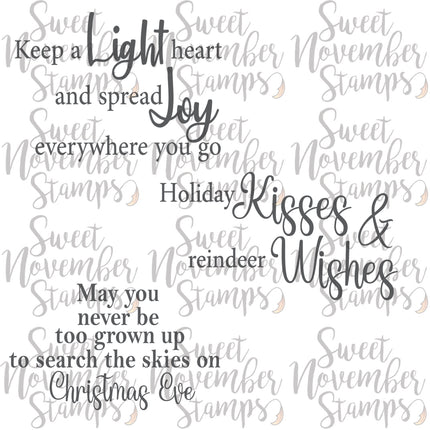 Keep a Light heart
and spread Joy
everywhere you go
Holiday Kisses &
reindeer Wishes
May you
never be
too grown up
to search the skies on
Christmas Eve
Sweet
November
Stamps
Sweet
November
Stamps
Sweet
November
Stamps
Sweet
November
Stamps
Sweet
November
Stamps
Sweet
November
Stamps
Sweet
November
Stamps
Sweet
November
Stamps
Sweet
November
Stamps
Sweet
November
Stamps
Sweet
November
Stamps
Sweet
November
Stamps